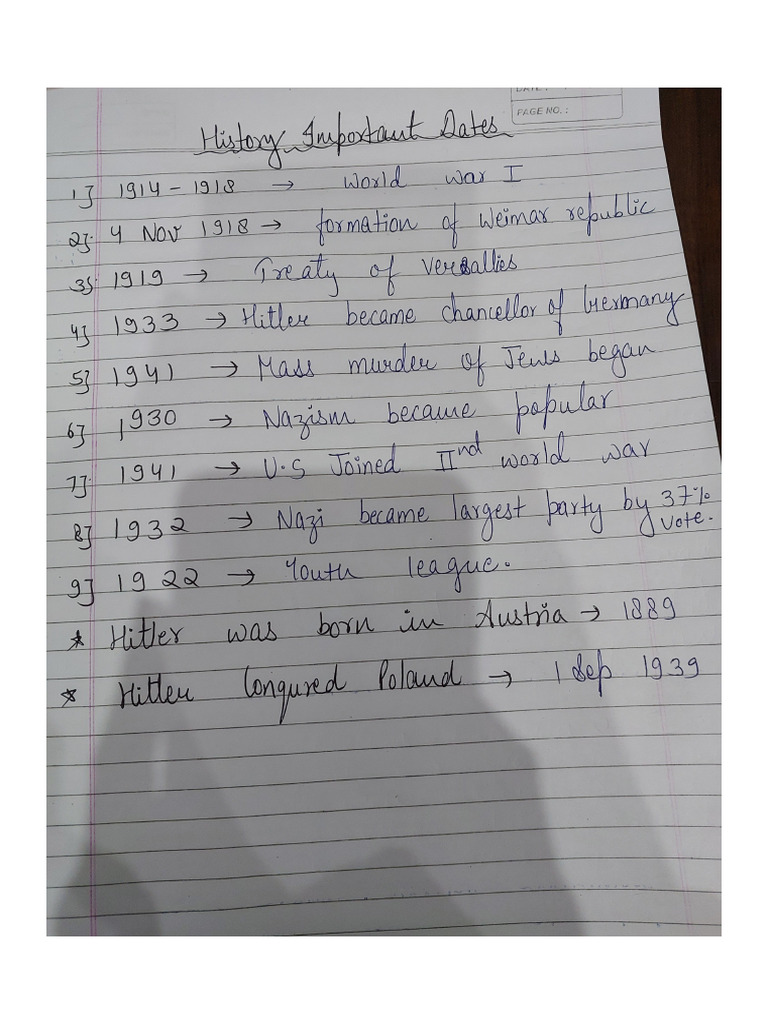 DATE :
PAGE NO. :
History Important Dates
1] 1914 - 1918 → World war I
2] 4 Nov 1918 → formation of Weimar republic
3] 1919 → Treaty of Versallies
4] 1933 → Hitler became chancellor of Germany
5] 1941 → Mass murder of Jews began
6] 1930 → Nazism became popular
7] 1941 → U.S Joined IInd world war
8] 1932 → Nazi became largest party by 37% vote.
9] 1922 → Youth league.
* Hitler was born in Austria → 1889
* Hitler Conqured Poland → 1 Sep 1939